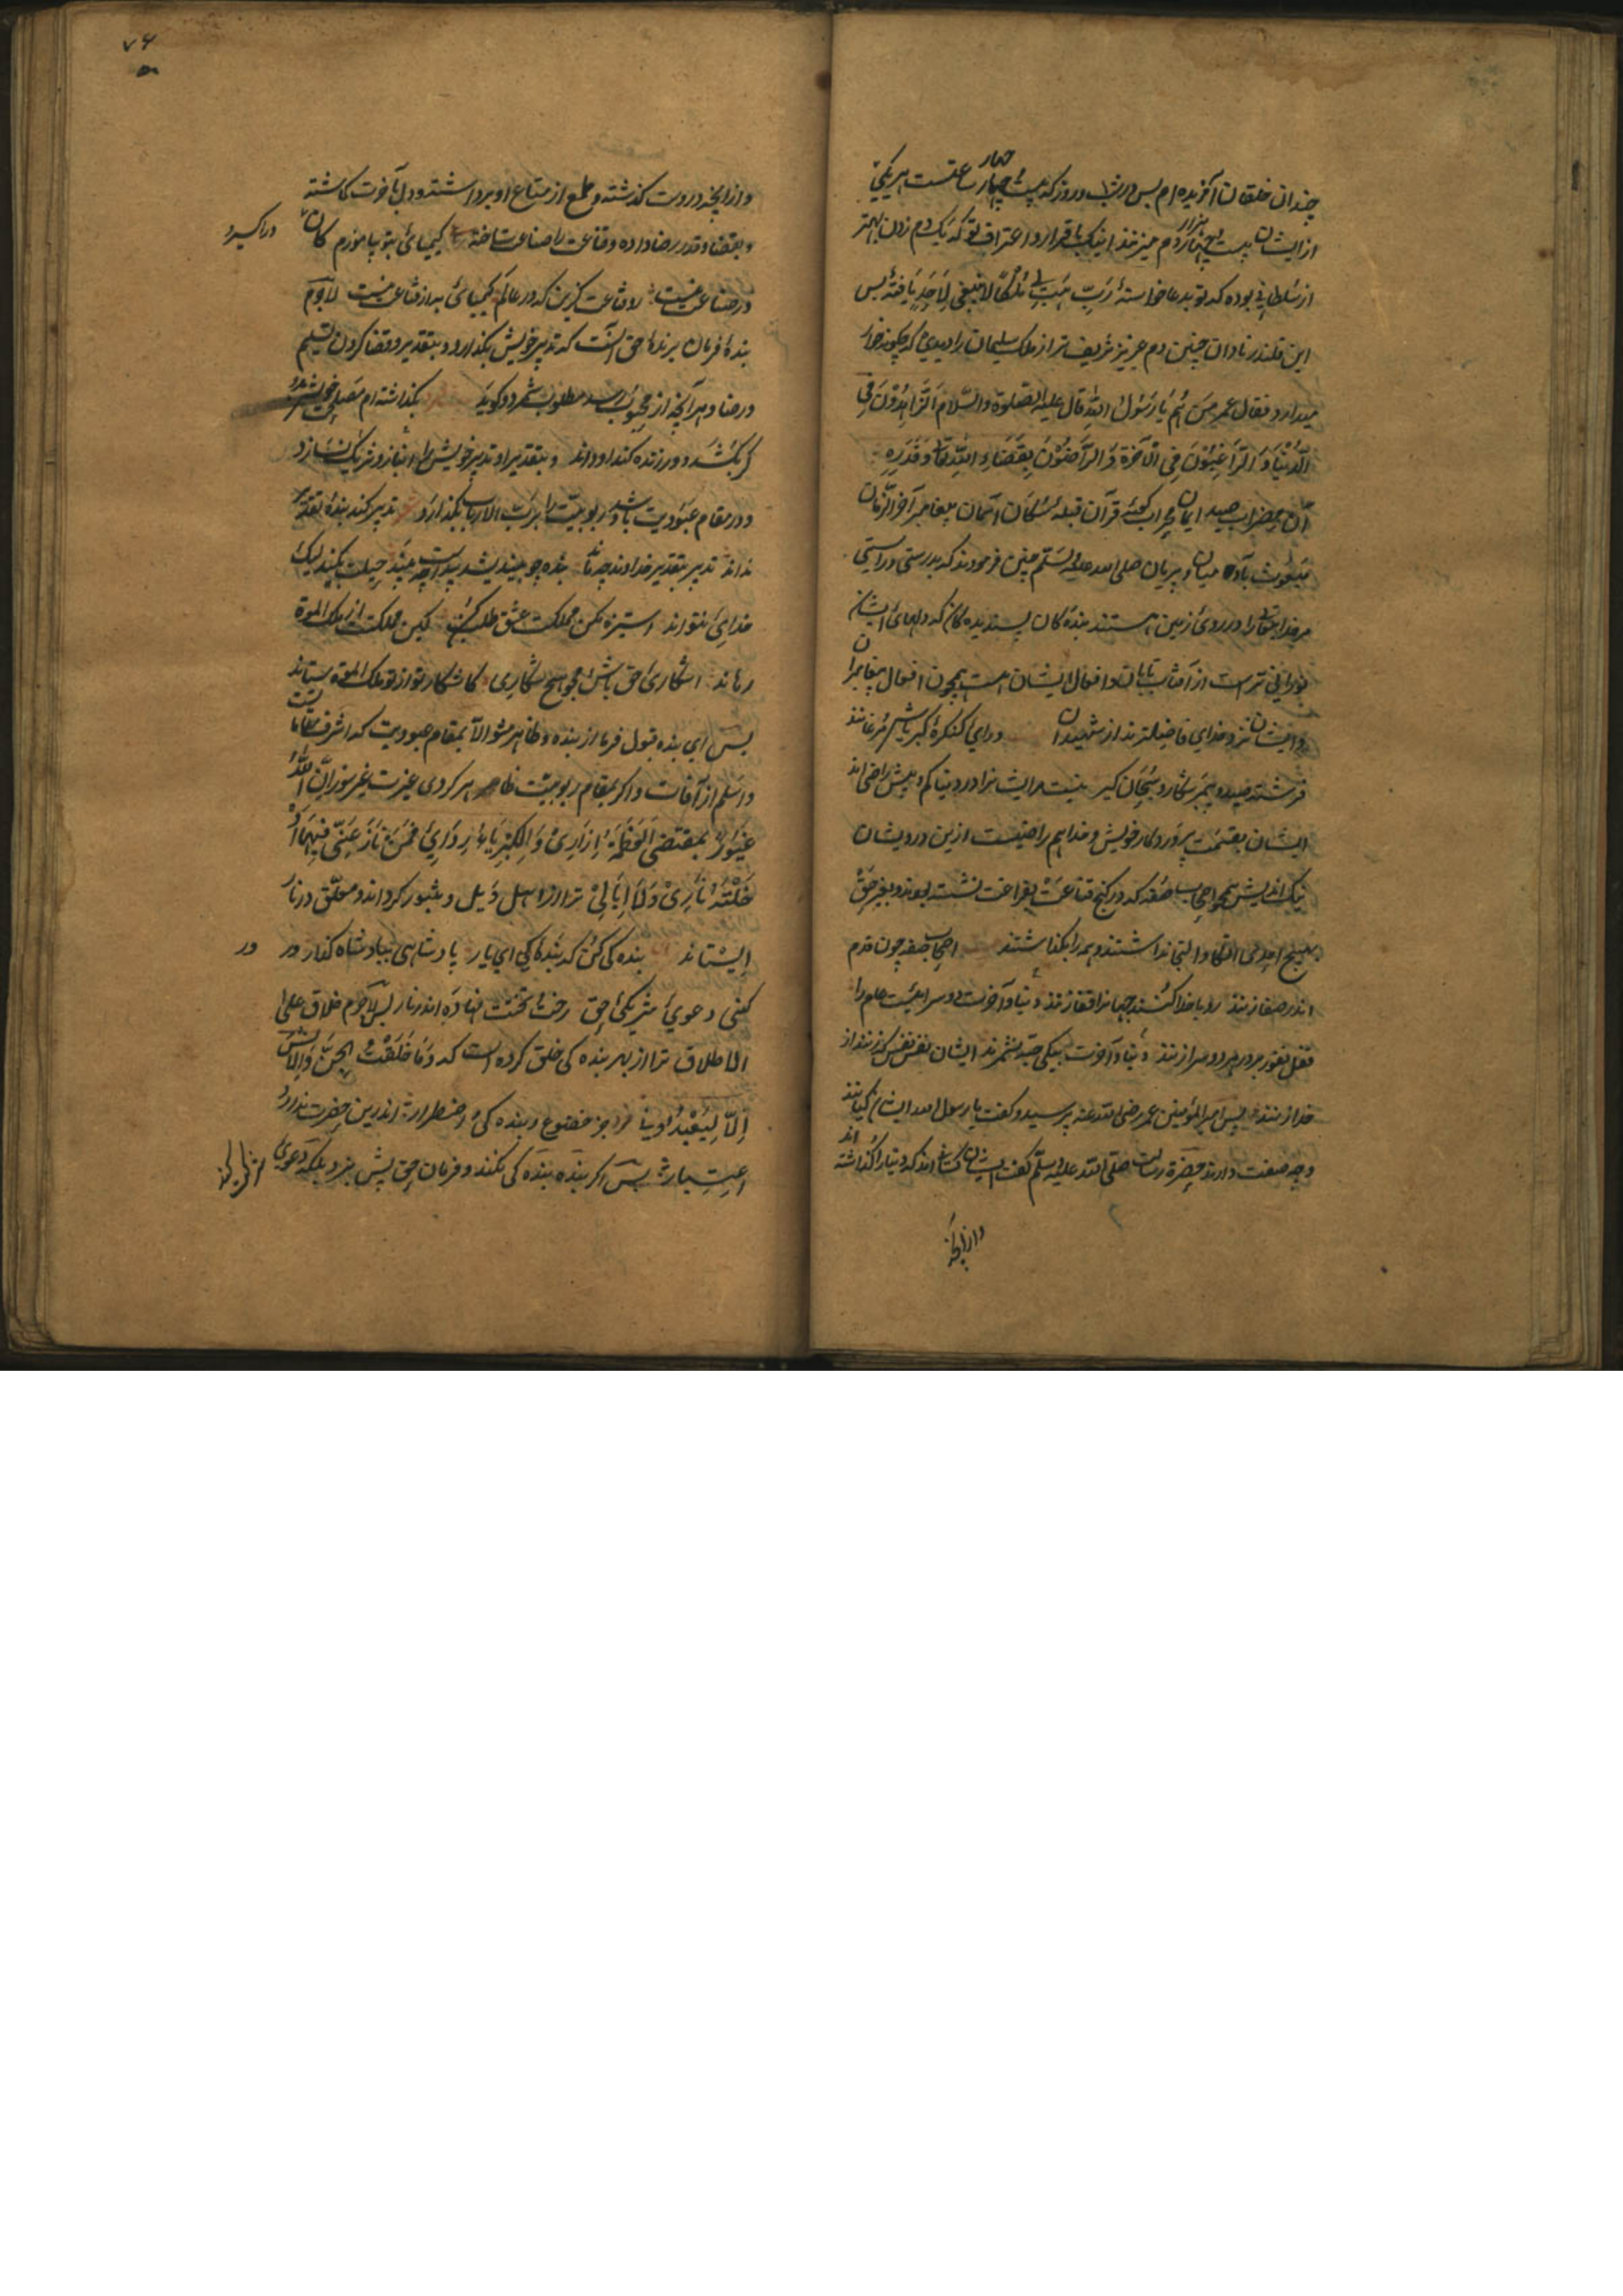 چندان خلقان آفریده‌ام پس در شب و روز که بیست و چهار ساعتست هر یکی
از ایشان بیست چهار هزار دم میزنند اینک باقرار و اعتراف تو که یک دم زدن بهتر
از سلطانی بوده که تو بدعا خواستهٔ رَبِّ هَبْ لِی مُلْکًا لا ینبغی لِاَحَدٍ یافتهٔ پس
این قلندر نادان چنین دم عزیز شریف‌تر از ملک سلیمان را دیدی که چگونه خوار
میدارد فقال عمر مَن هُم یَا رَسُولَ اللّٰه قال علیه الصلوة والسّلام اَلزَّاهِدُوْنَ فِی
الدُّنْیَا وَ الرَّاغِبُوْنَ فِی الْآخَرَةِ وَ الرَّاضُوْنَ بِقَضَاءِ اللّٰهِ تعالی وَ قَدَرِهِ
آن محراب ایمان قرآن قبلهٔ آسمان پیغامبر آخر الزّمان
مبعوث میان پریان صلی الله علیه وسلّم چنین فرمودند که بدرستی و راستی
مر خدایتعالی را در روی زمین هستند بندهٔ کان پسندیده کان که دلهای ایشان
نورانی ترست از آفتاب تابان و افعال ایشان هست همچون افعال پیغامبران
و ایشان نزد خدای فاضلترند از شهیدان ورای کنکرهٔ کبریاش مرغانند
فرشته صید و پیمبر شکار و سبحان کیر نیست مر ایشانرا در دنیا کم و بیش راضی‌اند
ایشان بقسمت پروردکار خویش و خدا هم راضیست ازین درویشان
نیک اندیش همچو اصحاب صفه که در کنج قناعت بفراغت نشسته بودند و بغیر حق
بهیچ احدی اتکا و التجا نداشتند و همه را بکذاشتند اصحاب صفه چون قدم
اندر صفا زنند رو با خدا کنند جهانرا قفا زنند دنیا و آخرت دو سرایست حلم را
قفل نفور بر در هر دو سرا زنند دنیا و آخرت بیکی حبّه نشمرند ایشان نفس نفس که زنند از
خدا زنند پس امیر المؤمنین عمر رضی الله عنه پرسید و کفت یا رسول الله ایشان کیانند
و چه صفت دارند حضرة رسالت صلی الله علیه وسلّم کفت ایشان کسانی‌اند که دنیا را کذاشته‌اند
و از آنچه
۷۶
و از آنچه دروست کذشته و طمع از متاع او برداشته و دل بآخرت کماشته
و بقضا و قدر رضا داده و قناعت را صناعت ساخته کیمیائی بتو بیاموزم کان در اکسیر و
در صناعت نیست رو قناعت کزین که در عالم کیمیائی به از قناعت نیست لاجرم
بندهٔ فرمان برندهٔ حق آنست که تدبیر خویش بکذارد و بتقدیر و قضا کردن تسلیم
و رضا و هر آنچه از محبوب رسد مطلوب شمرد و کوید بکذاشته‌ام مصلحت خویش بدو
کر بکشد و ور زنده کند او داند و بتقدیر او تدبیر خویش را انباز و شریک نسازد
و در مقام عبودیت باشد و ربوبیت را برب الارباب بکذارد تدبیر کند بنده و تقدیر
نداند تدبیر بتقدیر خداوند چه ماند بنده چو بیندیشد پیداست چه بیند حیلت بکند لیک
خدایی نتواند استیزه مکن مملکت عشق طلب کن کین مملکت از ملک الموت
رهاند اشکاری حق باش و مجو هیچ شکاری کاشکار تو از تو ملک الموت ستاند
پس ای بنده قبول فرما از بنده و ظاهر مشو الا بمقام عبودیت که اشرف مقاماتست
و اسلم از آفات و اکر بمقام ربوبیت ظاهر کردی غیرت غیرسوز اِنَّ اللّٰهَ
غَیُوْرٌ بمقتضی اَلْعَظَمَةُ اِزَارِیْ وَ الْکِبْرِیَاءُ رِدَاءِیْ فَمَنْ نَازَعَنِیْ فِیْهِمَا اَدْ
خَلْتُهُ نَارِیْ وَلَا اُبَالِیْ ترا از اهل ویل و ثبور کرداند و معلّق در نار
ایستاند بنده کی کن که بنده‌کی ای یار پادشاهی بیاد شاه کفار ور
کنی دعوی شریکی حق رخت و تختت فتاده اندر نار پس لاجرم خلاق علی
الاطلاق ترا از بهر بنده کی خلق کرده است که وَمَا خَلَقْتُ الْجِنَّ وَالْاِنْسَ
اِلَّا لِیَعْبُدُوْنِ جز خضوع و بنده کی و اضطرار اندرین حضرت ندارد
اعتبار پس اکر بنده بنده کی نکند و فرمان حق پیش نبرد بلکه دعوی